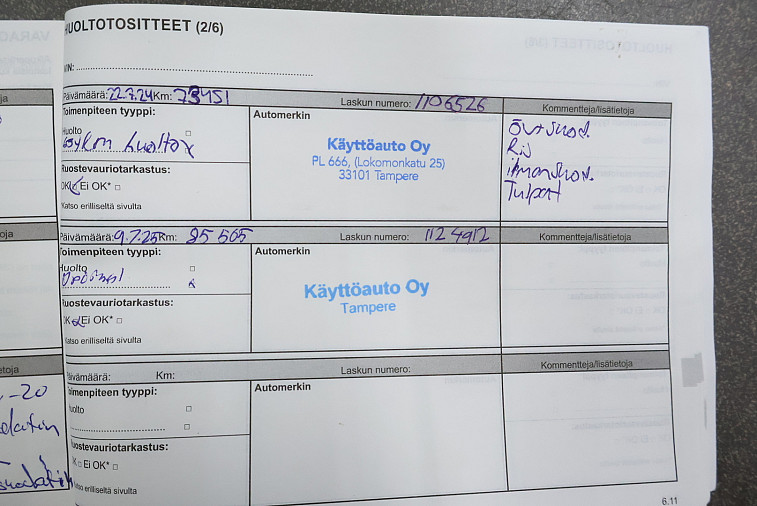 HUOLTOTOSITTEET (2/6)
VIN:
Päivämäärä: 22.7.24 Km: 73451 Laskun numero: 1106526 Kommentteja/lisätietoja
Toimenpiteen tyyppi:
Huolto □
huolto x
Ruostevauriotarkastus:
OK Ei OK* □
Katso erilliseltä sivulta
Automerkin
Käyttöauto Oy
PL 666, (Lokomonkatu 25)
33101 Tampere
Öljt suod.
ilmansuod.
Tulpat
Päivämäärä: 9.7.25 Km: 85 565 Laskun numero: 1124912 Kommentteja/lisätietoja
Toimenpiteen tyyppi:
Huolto □
x
Ruostevauriotarkastus:
OK Ei OK* □
Katso erilliseltä sivulta
Automerkin
Käyttöauto Oy
Tampere
Päivämäärä: Km: Laskun numero: Kommentteja/lisätietoja
Toimenpiteen tyyppi:
Huolto □
□
Ruostevauriotarkastus:
OK □ Ei OK* □
Katso erilliseltä sivulta
Automerkin
6.11